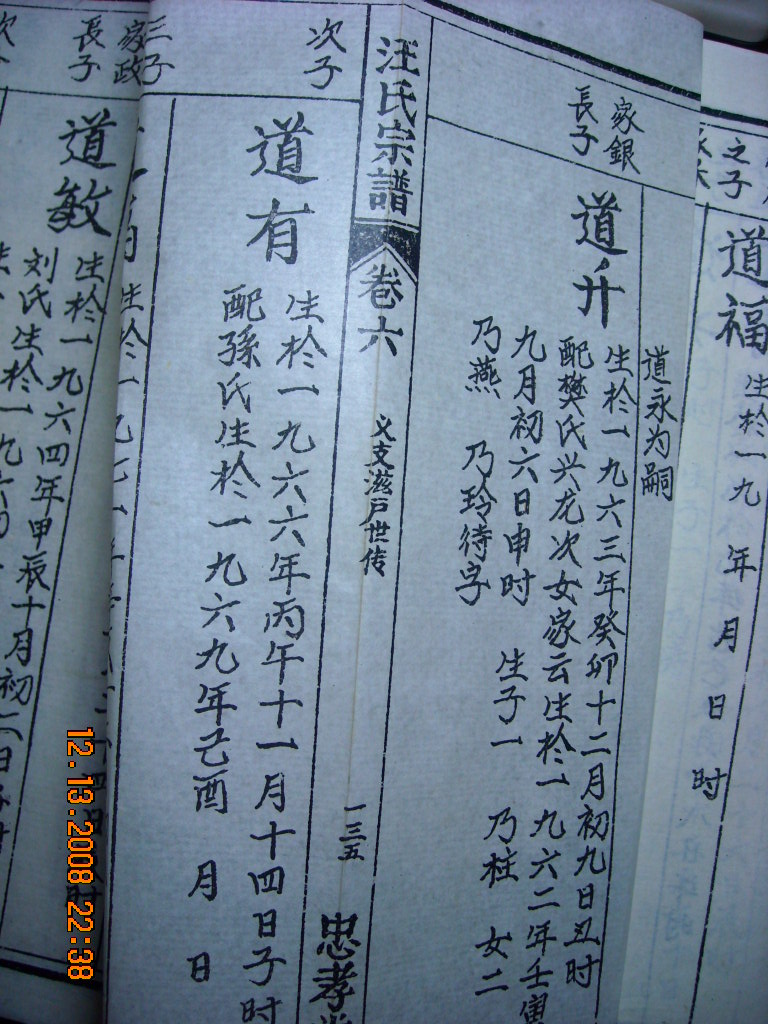 之子
道福
生於一九 年 月 日 时
道永为嗣
家銀
長子
道升
生於一九六三年癸卯十二月初九日丑时
配樊氏兴龙次女家云生於一九六二年壬寅
九月初六日申时 生子一 乃柱 女二
乃燕 乃玲待字
汪氏宗譜
卷六
义支滋户世传
一三五
忠孝
次子
道有
生於一九六六年丙午十一月十四日子时
配孫氏生於一九六九年己酉 月 日
三子
家政
長子
道敏
生於一九六四年甲辰十月初二日子时
刘氏生於一九六
12.13.2008 22:38